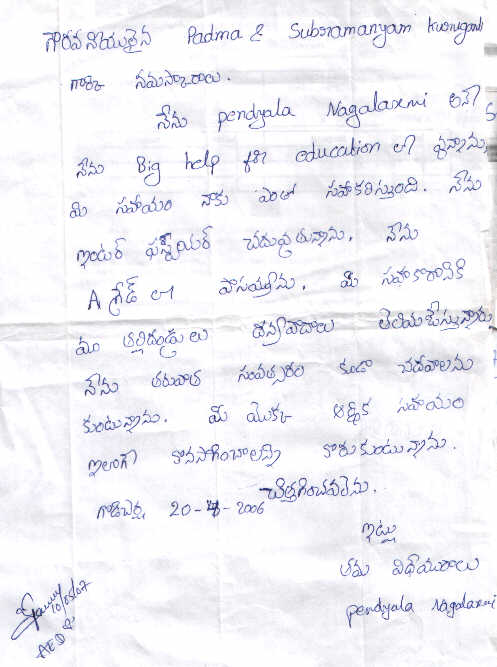 గౌరవనీయులైన Padma & Subramanyam Kuruganti
గార్కి నమస్కారాలు.
నేను pendyala Nagalaxmi అనే
నేను Big help for education లో వున్నాను
మీ సహాయం నాకు ఎంతో సహకరిస్తుంది. నేను
ఇంటర్ ఫస్టియర్ చదువుతున్నాను. నేను
A గ్రేడ్ లో పాసయ్యాను. మీ సహకారానికి
మా తల్లిదండ్రులు ధన్యవాదాలు తెలియజేస్తున్నారు
నేను తరువాత సంవత్సరం కూడా చదవాలను
కుంటున్నాను. మీ యొక్క ఆర్థిక సహాయం
ఇలాగే కొనసాగించాలని కోరుకుంటున్నాను.
చిత్తగించవలెను.
20-4-2006
ఇట్లు
తమ విధేయురాలు
pendyala Nagalaxmi
10/05/07
AED